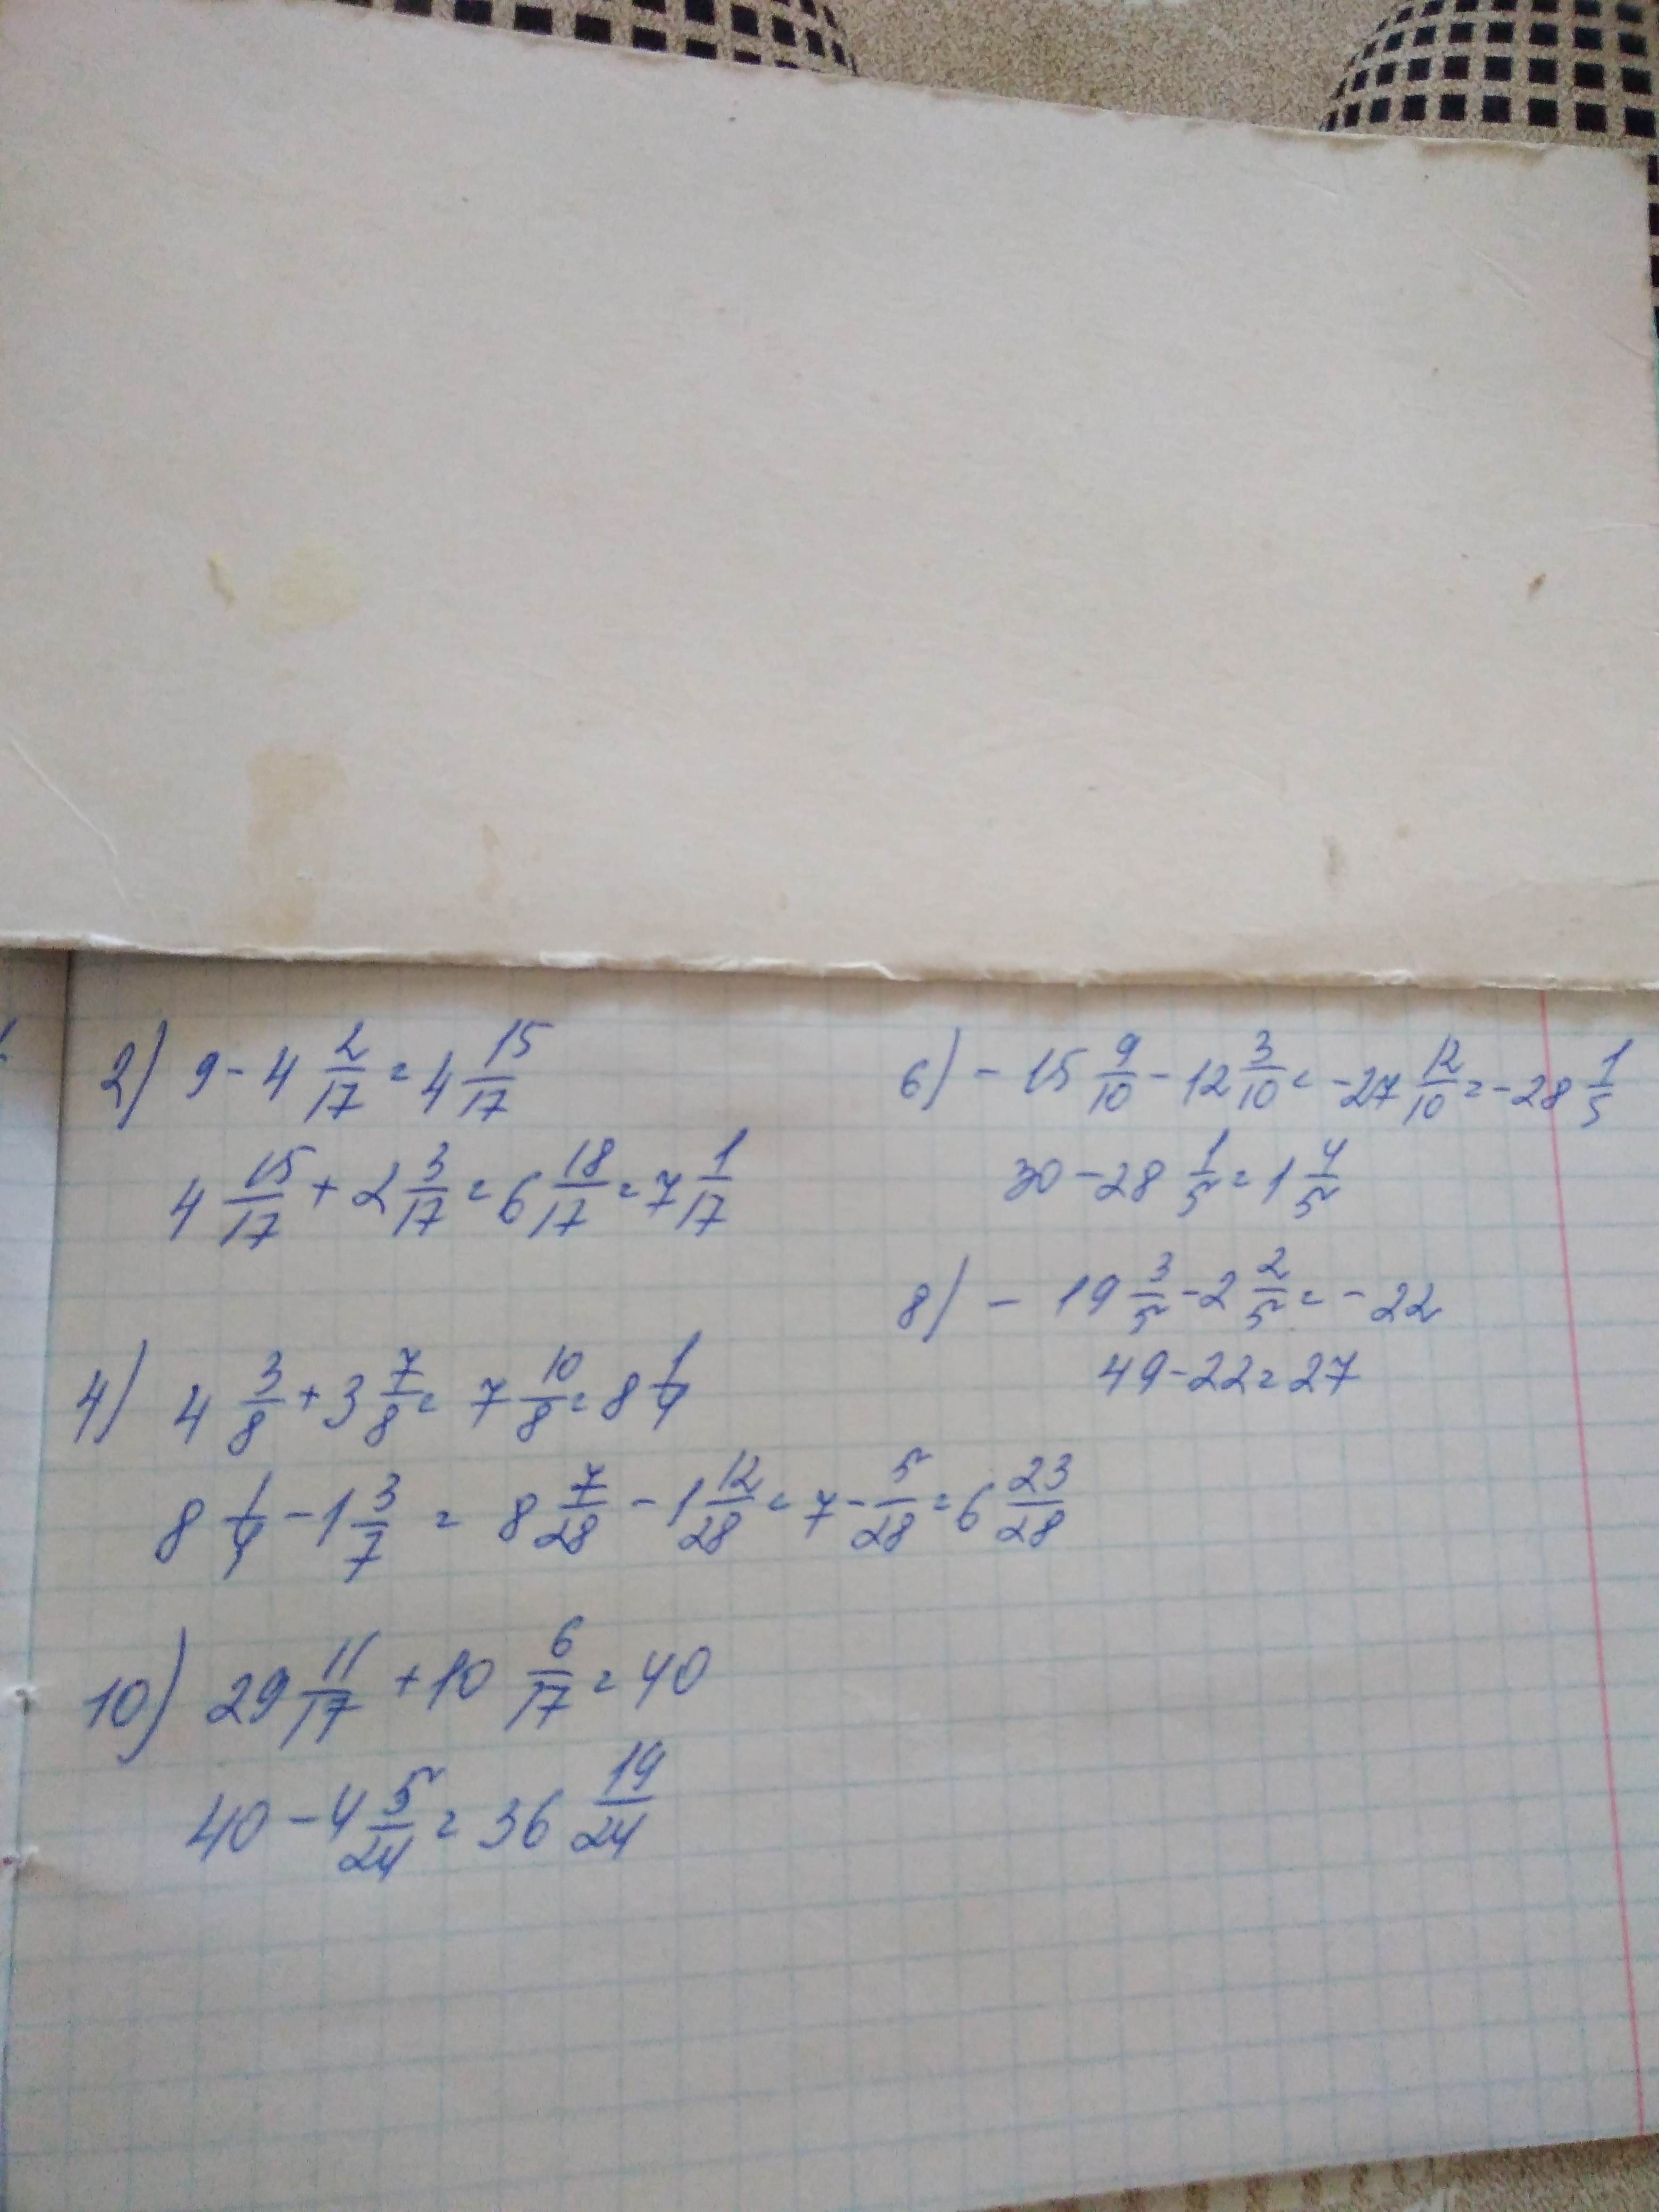 2) 9 - 4 2/17 = 4 15/17
4 15/17 + 2 3/17 = 6 18/17 = 7 1/17
4) 4 3/8 + 3 7/8 = 7 10/8 = 8 1/4
8 1/4 - 1 3/7 = 8 7/28 - 1 12/28 = 7 - 5/28 = 6 23/28
10) 29 11/17 + 10 6/17 = 40
40 - 4 5/24 = 36 19/24
6) - 15 9/10 - 12 3/10 = -27 12/10 = -28 1/5
30 - 28 1/5 = 1 4/5
8) - 19 3/5 - 2 2/5 = -22
49 - 22 = 27